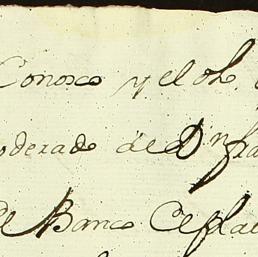 Conosco y el oh
oderado de Dn fra
de Banco Cepla